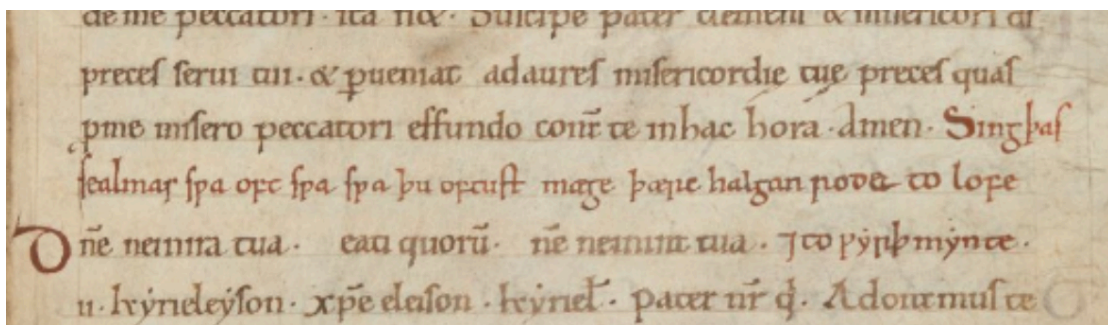 de me peccatori · ita nc̄ · Suscipe pater clemens & misericors dš
preces serui tui · & ꝑueniat ad aures misericordie tuę preces quas
ꝓme misero peccatori effundo corā te inhac hora · Amen · Sing þas
sealmas swa oft swa swa þu oftust mæge þære halgan rode to lofe
Dn̄e ne in ira tua · eati quorū · n̄e ne in ira tua · ⁊ to ƿyrþmynte ·
u · kyrieleyson · xp̄e eleison · kyriel̄ · pater nr̄ q̄ · Adoremus te